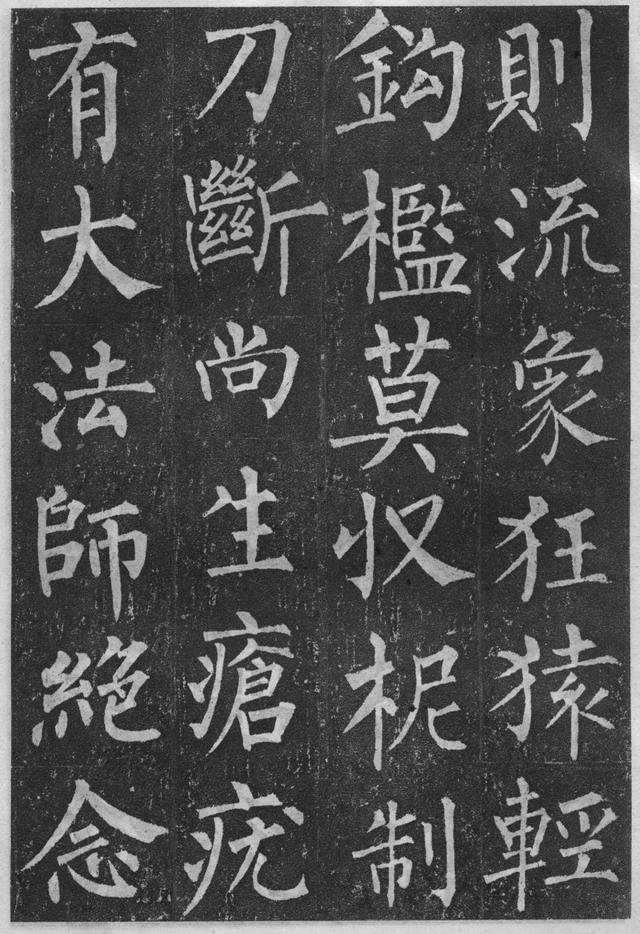 則流象狂猿輕
鈎檻莫収柅制
刀斷尚生瘡疣
有大法師絶念